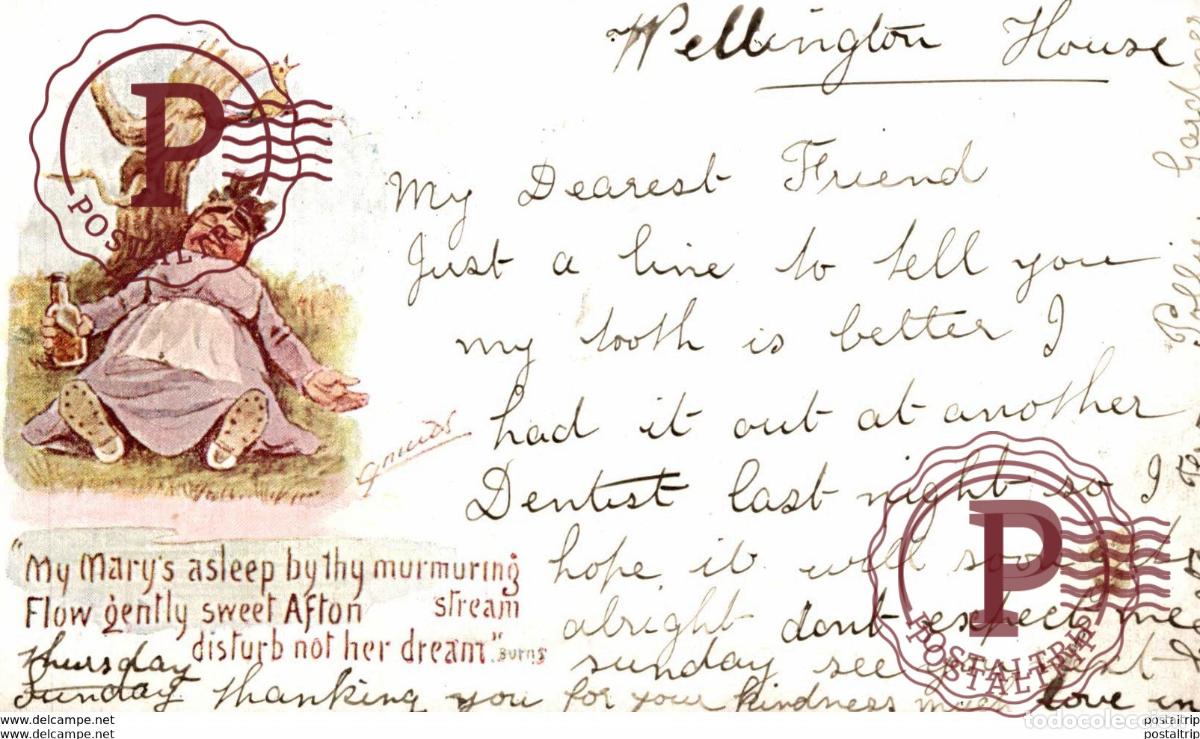 Wellington House
My Dearest Friend
Just a line to tell you
my tooth is better I
had it out at another
Dentist last night so I
hope it will soon
alright dont expect me
sunday see
Thursday
Sunday thanking you for your kindness much love in
"My Mary's asleep by thy murmuring
stream
Flow gently sweet Afton
disturb not her dream." Burns
P
POSTALTRIP
P
POSTALTRIP
POSTALTRIP
todocoleccion
www.delcampe.net
www.delcampe.net
postaltrip
postaltrip